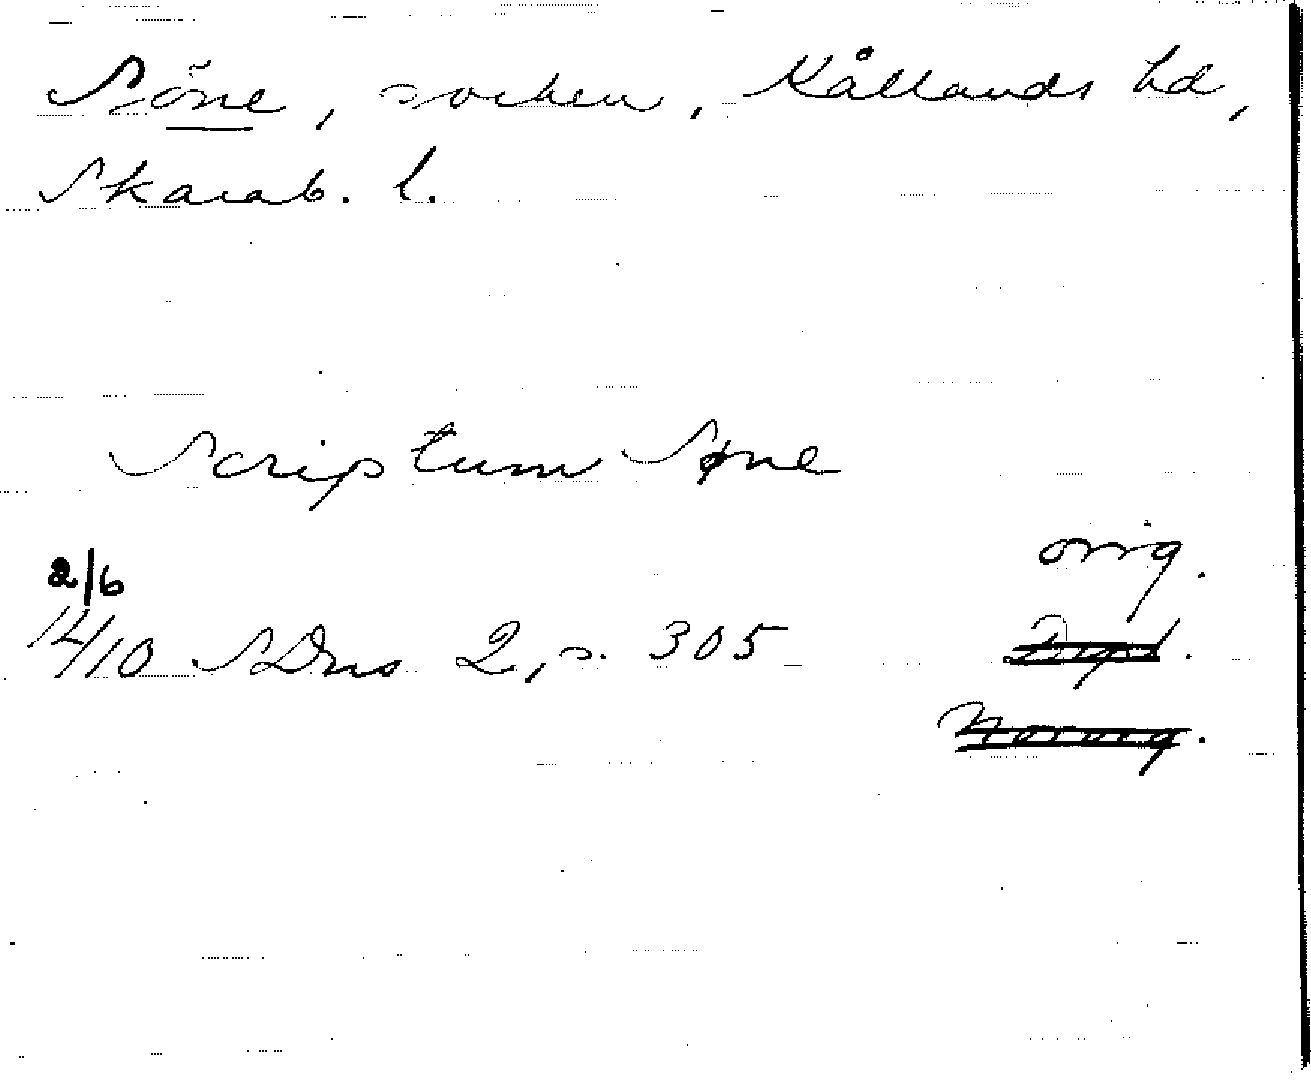 Söne, socken, Kållands hd,
Skarab. l.
Scriptum Søne
orig.
2/6
14/10 SDns 2, s. 305